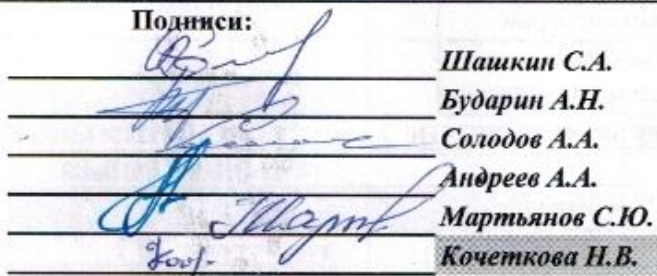 Подписи:
Шашкин С.А.
Бударин А.Н.
Солодов А.А.
Андреев А.А.
Мартьянов С.Ю.
Кочеткова Н.В.